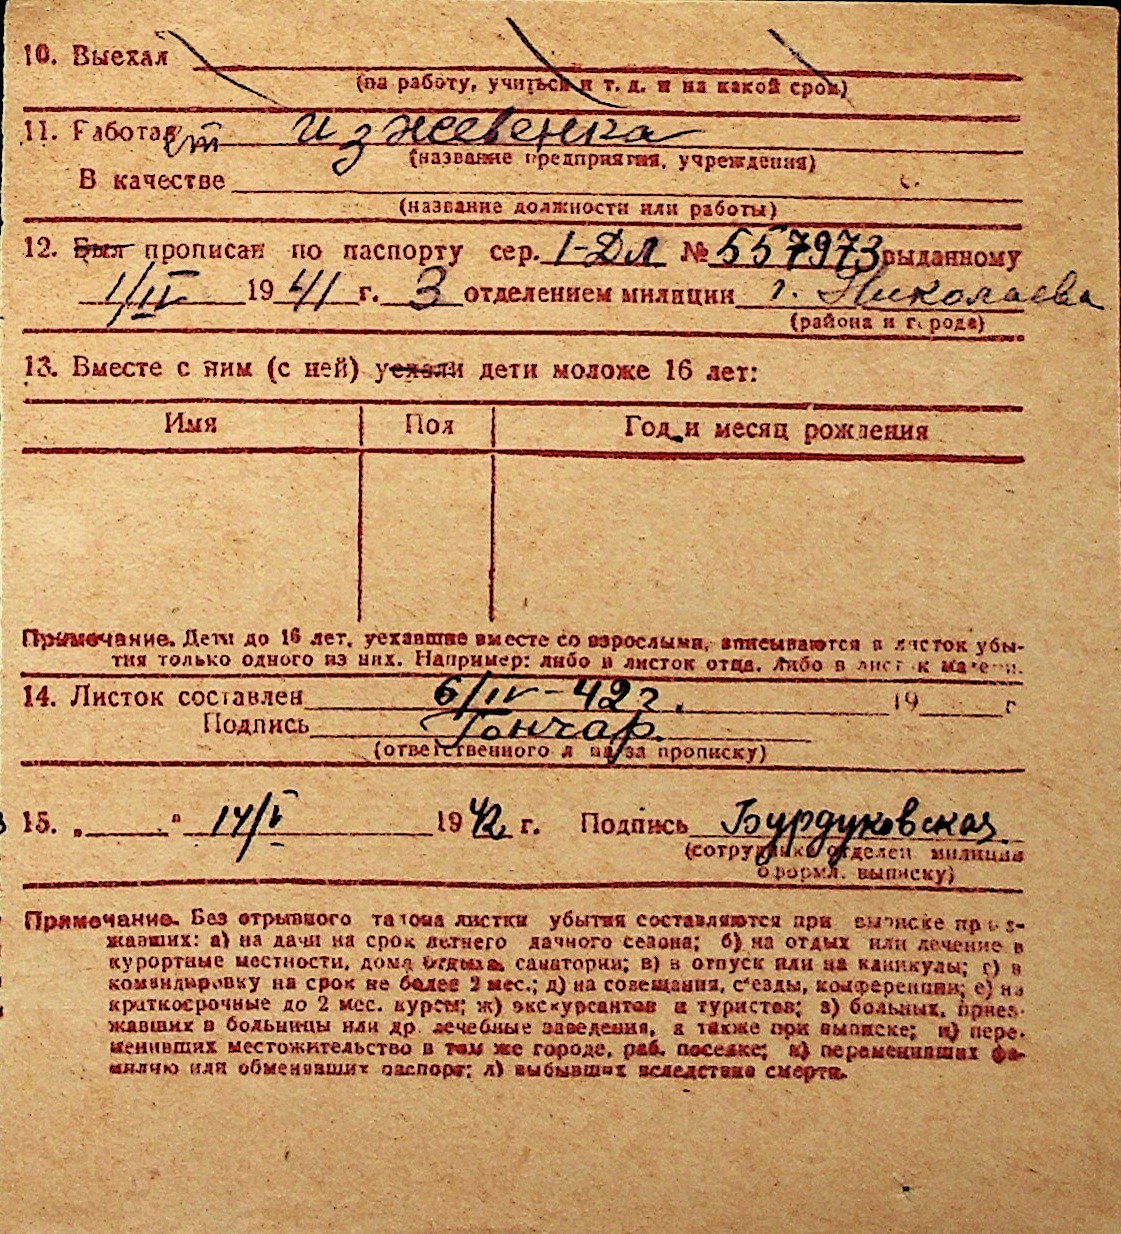 10. Выехал
(на работу, учиться и т. д. и на какой срок)
11. Работает иждивенка
(название предприятия, учреждения)
В качестве
(название должности или работы)
12. Был прописан по паспорту сер. 1-ДЛ № 557973 выданному
1/IV 1941 г. 3 отделением милиции г. Николаева
(района и города)
13. Вместе с ним (с ней) уехали дети моложе 16 лет:
Имя Пол Год и месяц рождения
Примечание. Дети до 16 лет, уехавшие вместе со взрослыми, вписываются в листок убы-
тия только одного из них. Например: либо в листок отца, либо в листок матери.
14. Листок составлен 6/IV-42 г. 19 г
Подпись Гончар.
(ответственного лица за прописку)
15. „ “ 14/V 1942 г. Подпись Бурдуковская
(сотрудника отделен милиции
оформл. выписку)
Примечание. Без отрывного талона листки убытия составляются при выписке приез-
жавших: а) на дачи на срок летнего дачного сезона; б) на отдых или лечение в
курортные местности, дома отдыха, санатории; в) в отпуск или на каникулы; г) в
командировку на срок не более 2 мес.; д) на совещания, съезды, конференции; е) на
краткосрочные до 2 мес. курсы; ж) экскурсантов и туристов; з) больных, приез-
жавших в больницы или др. лечебные заведения, а также при выписке; и) пере-
менивших местожительство в том же городе, раб. поселке; к) переменивших фа-
милию или обменявших паспорт; л) выбывших вследствие смерти.